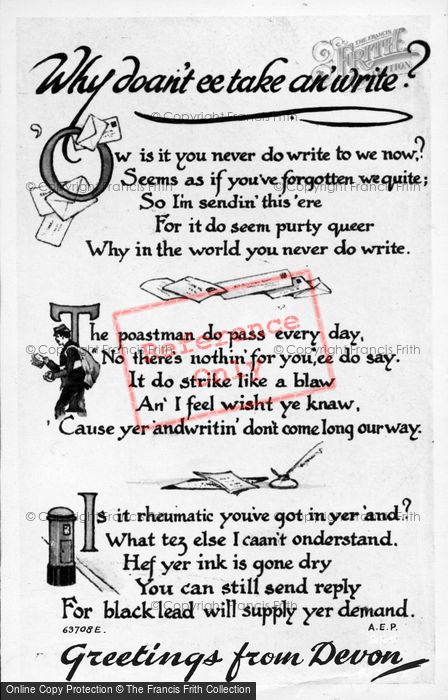 Why doan't ee take an' write?
THE FRANCIS
FRITH
COLLECTION
'Ow is it you never do write to we now,?
Seems as if you've forgotten we quite;
So I'm sendin' this 'ere
For it do seem purty queer
Why in the world you never do write.
The poastman do pass every day,
'No there's nothin' for you, ee do say.
It do strike like a blaw
An' I feel wisht ye knaw,
'Cause yer 'andwritin' don't come long our way.
Reference
Only
Is it rheumatic you've got in yer 'and?
What tez else I caan't onderstand.
Hef yer ink is gone dry
You can still send reply
For black lead will supply yer demand.
63708E. A.E.P.
Greetings from Devon
© Copyright Francis Frith
Online Copy Protection © The Francis Frith Collection